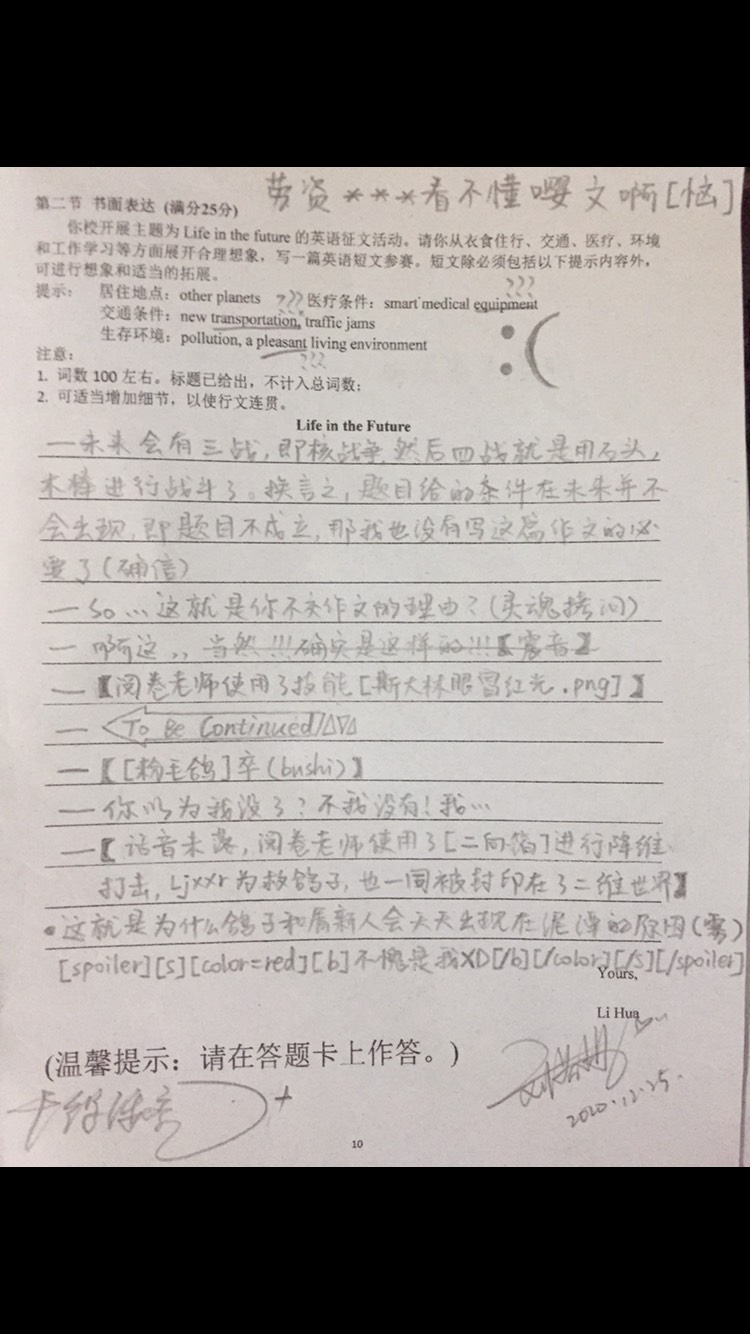 劳资***看不懂嘤文啊[恼]
第二节 书面表达 (满分25分)
你校开展主题为 Life in the future 的英语征文活动。请你从衣食住行、交通、医疗、环境
和工作学习等方面展开合理想象，写一篇英语短文参赛。短文除必须包括以下提示内容外，
可进行想象和适当的拓展。
???
提示： 居住地点：other planets ??? 医疗条件：smart medical equipment
交通条件：new transportation, traffic jams
生存环境：pollution, a pleasant living environment
???
:(
注意：
1. 词数 100 左右。标题已给出，不计入总词数；
2. 可适当增加细节，以使行文连贯。
Life in the Future
—未来会有三战,即核战争,然后四战就是用石头,
木棒进行战斗了。换言之,题目给的条件在未来并不
会出现,即题目不成立,那我也没有写这篇作文的必
要了(确信)
— So...这就是你不交作文的理由?(灵魂拷问)
— 啊这,,当然!!!确实是这样的!!!【震音】
—【阅卷老师使用了技能[斯大林眼冒红光.png]】
— To Be Continued/△▽△
—【[粉毛鸽]卒(bushi)】
— 你以为我没了?不我没有!我...
—【话音未落,阅卷老师使用了[二向箔]进行降维
打击,Ljxxr为救鸽子,也一同被封印在了二维世界】
•这就是为什么鸽子和屑新人会天天出现在泥潭的原因(雾)
[spoiler][s][color=red][b]不愧是我XD[/b][/color][/s][/spoiler]
Yours,
Li Hua
(温馨提示：请在答题卡上作答。)
2020.12.25.
10